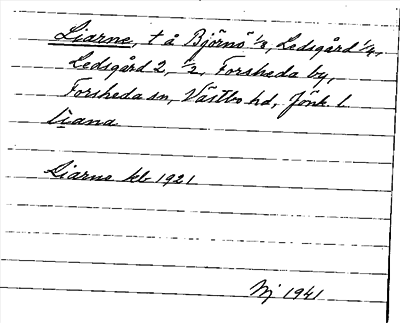 Liarne, t å Björnö 1/3, Ledsgård 1/4,
Ledsgård 2, 1/2, Forsheda by,
Forsheda sn, Västbo hd, Jönk. l
liana
Liarne kb 1921
Nj 1941